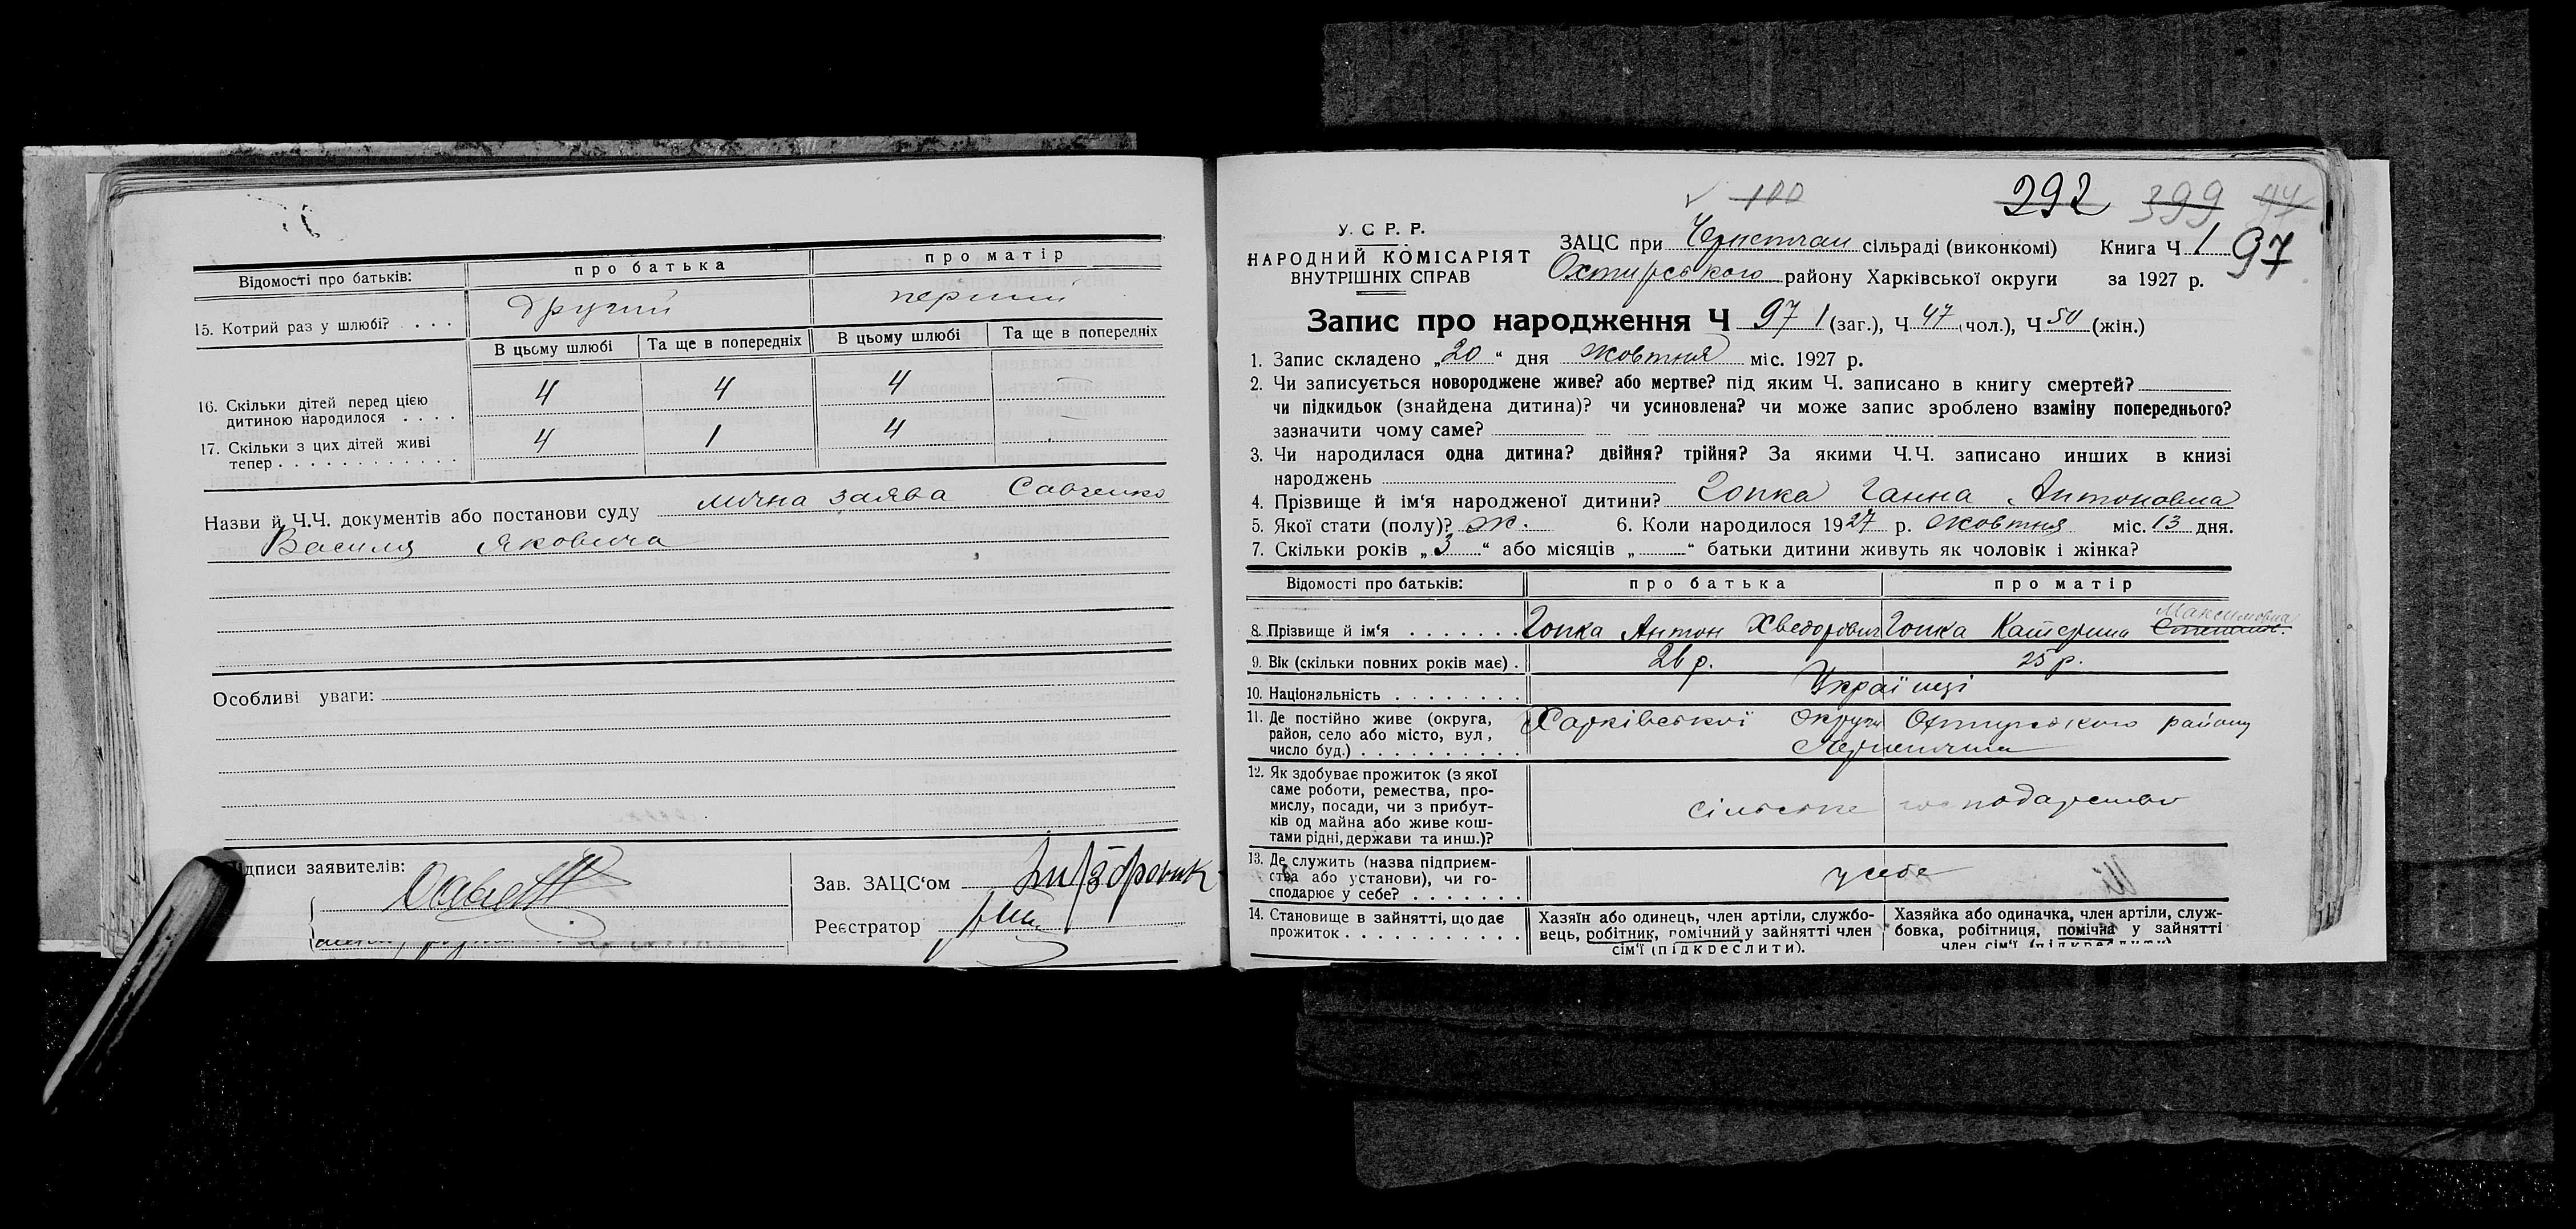 Відомості про батьків: про батька про матір
15. Котрий раз у шлюбі? . . . . другий перший
В цьому шлюбі Та ще в попередніх В цьому шлюбі Та ще в попередніх
16. Скільки дітей перед цією
дитиною народилося . . . . 4 4 4 —
17. Скільки з цих дітей живі
тепер . . . . . . . . . . . . . 4 1 4 —
Назви й Ч.Ч. документів або постанови суду лична заява Савченко
Василя Яковича
Особливі уваги:
ідписи заявителів:
Зав. ЗАЦС'ом
Реєстратор
100 292 399 94
У. С Р. Р.
НАРОДНИЙ КОМІСАРІЯТ
ВНУТРІШНІХ СПРАВ
ЗАЦС при сільраді (виконкомі) Книга Ч 1 97
Охтирського району Харківської округи за 1927 р.
Запис про народження Ч 97 1 (заг.), Ч 47 (чол.), Ч 50 (жін.)
1. Запис складено „20“ дня жовтня міс. 1927 р.
2. Чи записується новороджене живе? або мертве? під яким Ч. записано в книгу смертей?
чи підкидьок (знайдена дитина)? чи усиновлена? чи може запис зроблено взаміну попереднього?
зазначити чому саме?
3. Чи народилася одна дитина? двійня? трійня? За якими Ч.Ч. записано инших в книзі
народжень
4. Прізвище й ім'я народженої дитини? Гопка Ганна Антоновна
5. Якої стати (полу)? Ж. 6. Коли народилося 1927 р. жовтня міс. 13 дня.
7. Скільки років „3“ або місяців „ “ батьки дитини живуть як чоловік і жінка?
Відомості про батьків: про батька про матір
Максимовна
8. Прізвище й ім'я . . . . . . . Гопка Антон Хведорович Гопка Катерина Степанов.
9. Вік (скільки повних років має) . 26 р. 25 р.
10. Національність . . . . . . . . Українці
11. Де постійно живе (округа,
район, село або місто, вул,
число буд.) . . . . . . . . . . Харківської округи Охтирського району
12. Як здобуває прожиток (з якої
саме роботи, ремества, про-
мислу, посади, чи з прибут-
ків од майна або живе кош-
тами рідні, держави та инш.)? сільське господарство
13. Де служить (назва підприєм-
ства або установи), чи го-
сподарює у себе? . . . . . . . у себе
14. Становище в зайнятті, що дає
прожиток . . . . . . . . . . .
Хазяїн або одинець, член артіли, службо-
вець, робітник, помічний у зайнятті член
сім'ї (підкреслити).
Хазяйка або одиначка, член артіли, служ-
бовка, робітниця, помічна у зайнятті
член сім'ї (підкреслити)